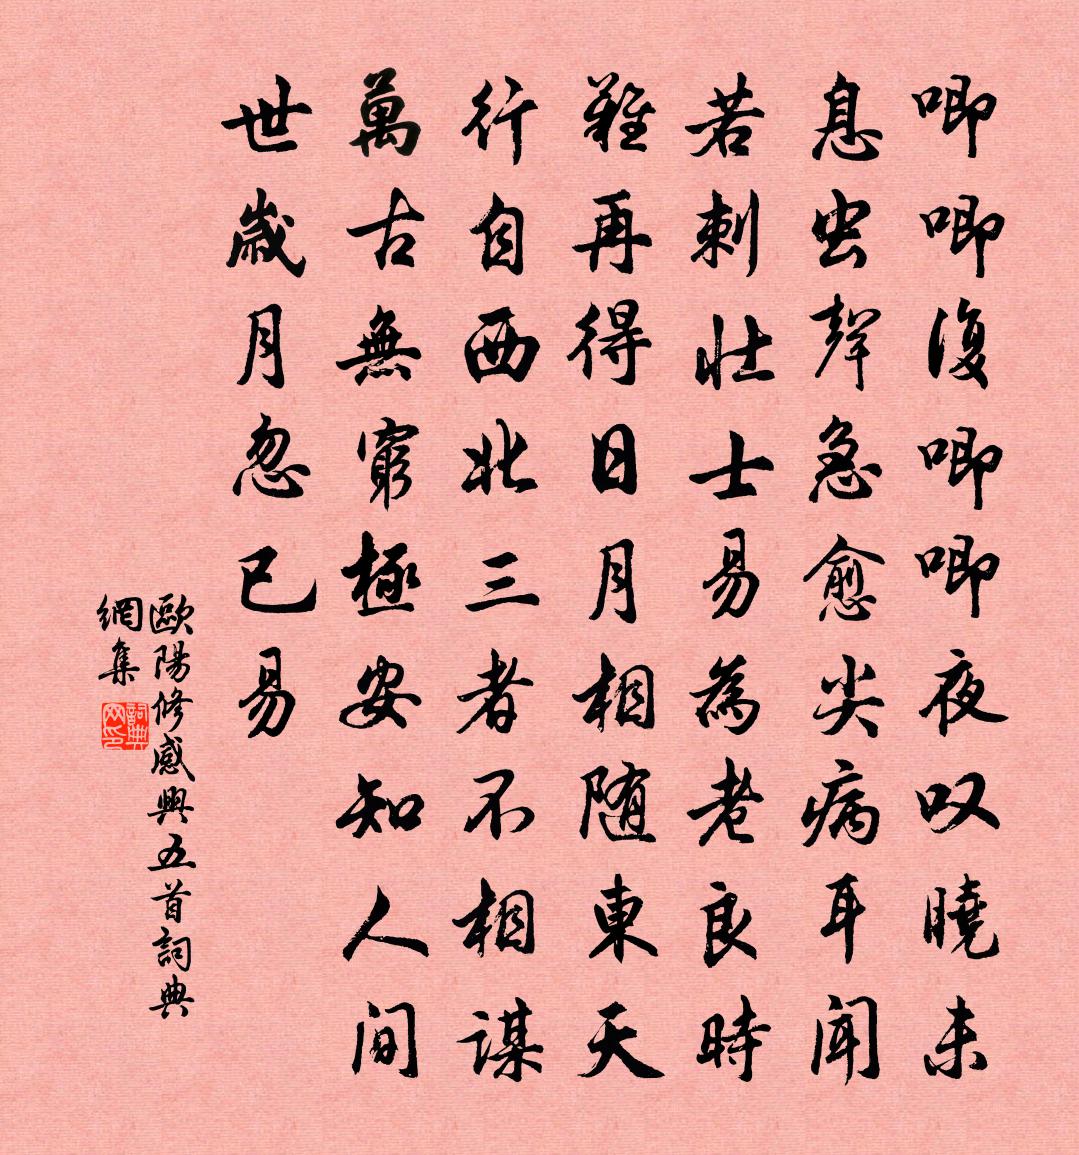 唧唧復唧唧夜叹曉未
息虫聲急愈尖病耳聞
若刺壮士易為老良時
難再得日月相随東天
行自西北三者不相謀
萬古無窮極安知人间
世歲月忽已易
歐陽修感興五首詞典
網集
詞典
网印